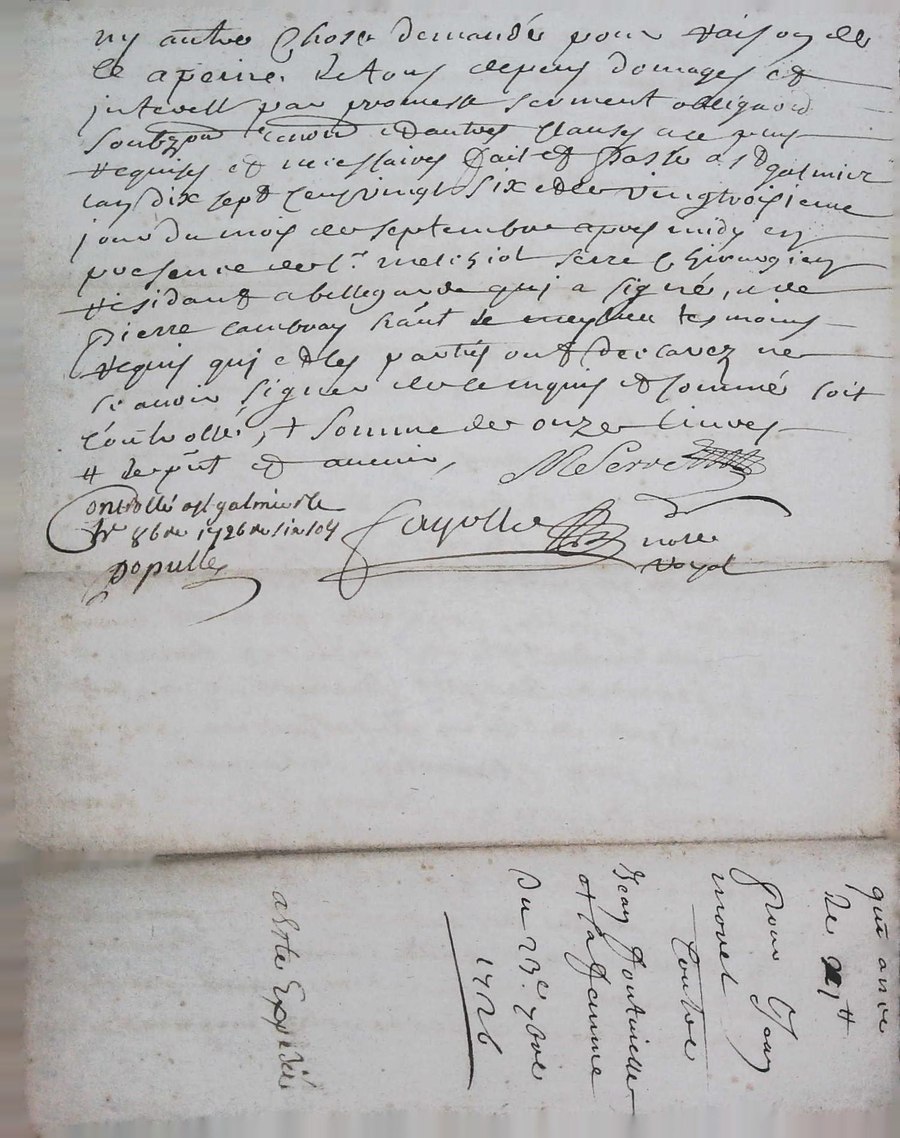 ny autre chose demandér pour raison de
ce a peine de tous depens domages et
interest par promesse serment obligaon
renon et autres clauses a ce plus
requises et necessaires fait et passé a st galmier
lan dix sept cens vingt six et le vingtroisieme
jour du mois de septembre apres midy en
presence de sr. melchiol serre chirurgien
residant a bellegarde qui a signé, et de
pierre cambray hant de tesmoins
requis qui et les parties ont declarez ne
scavoir signer de ce enquis et sommé soit
controllé, + somme de onze livres
# despñt et
MSerre
Controllé a st galmier le
8bre 1726
populle
fayolle
notre
royal
quittance
de XI #
pour Jean
morel
contre
Jean fontvielle
et sa femme
Du 23e. 7bre
1726
a esté Expedié